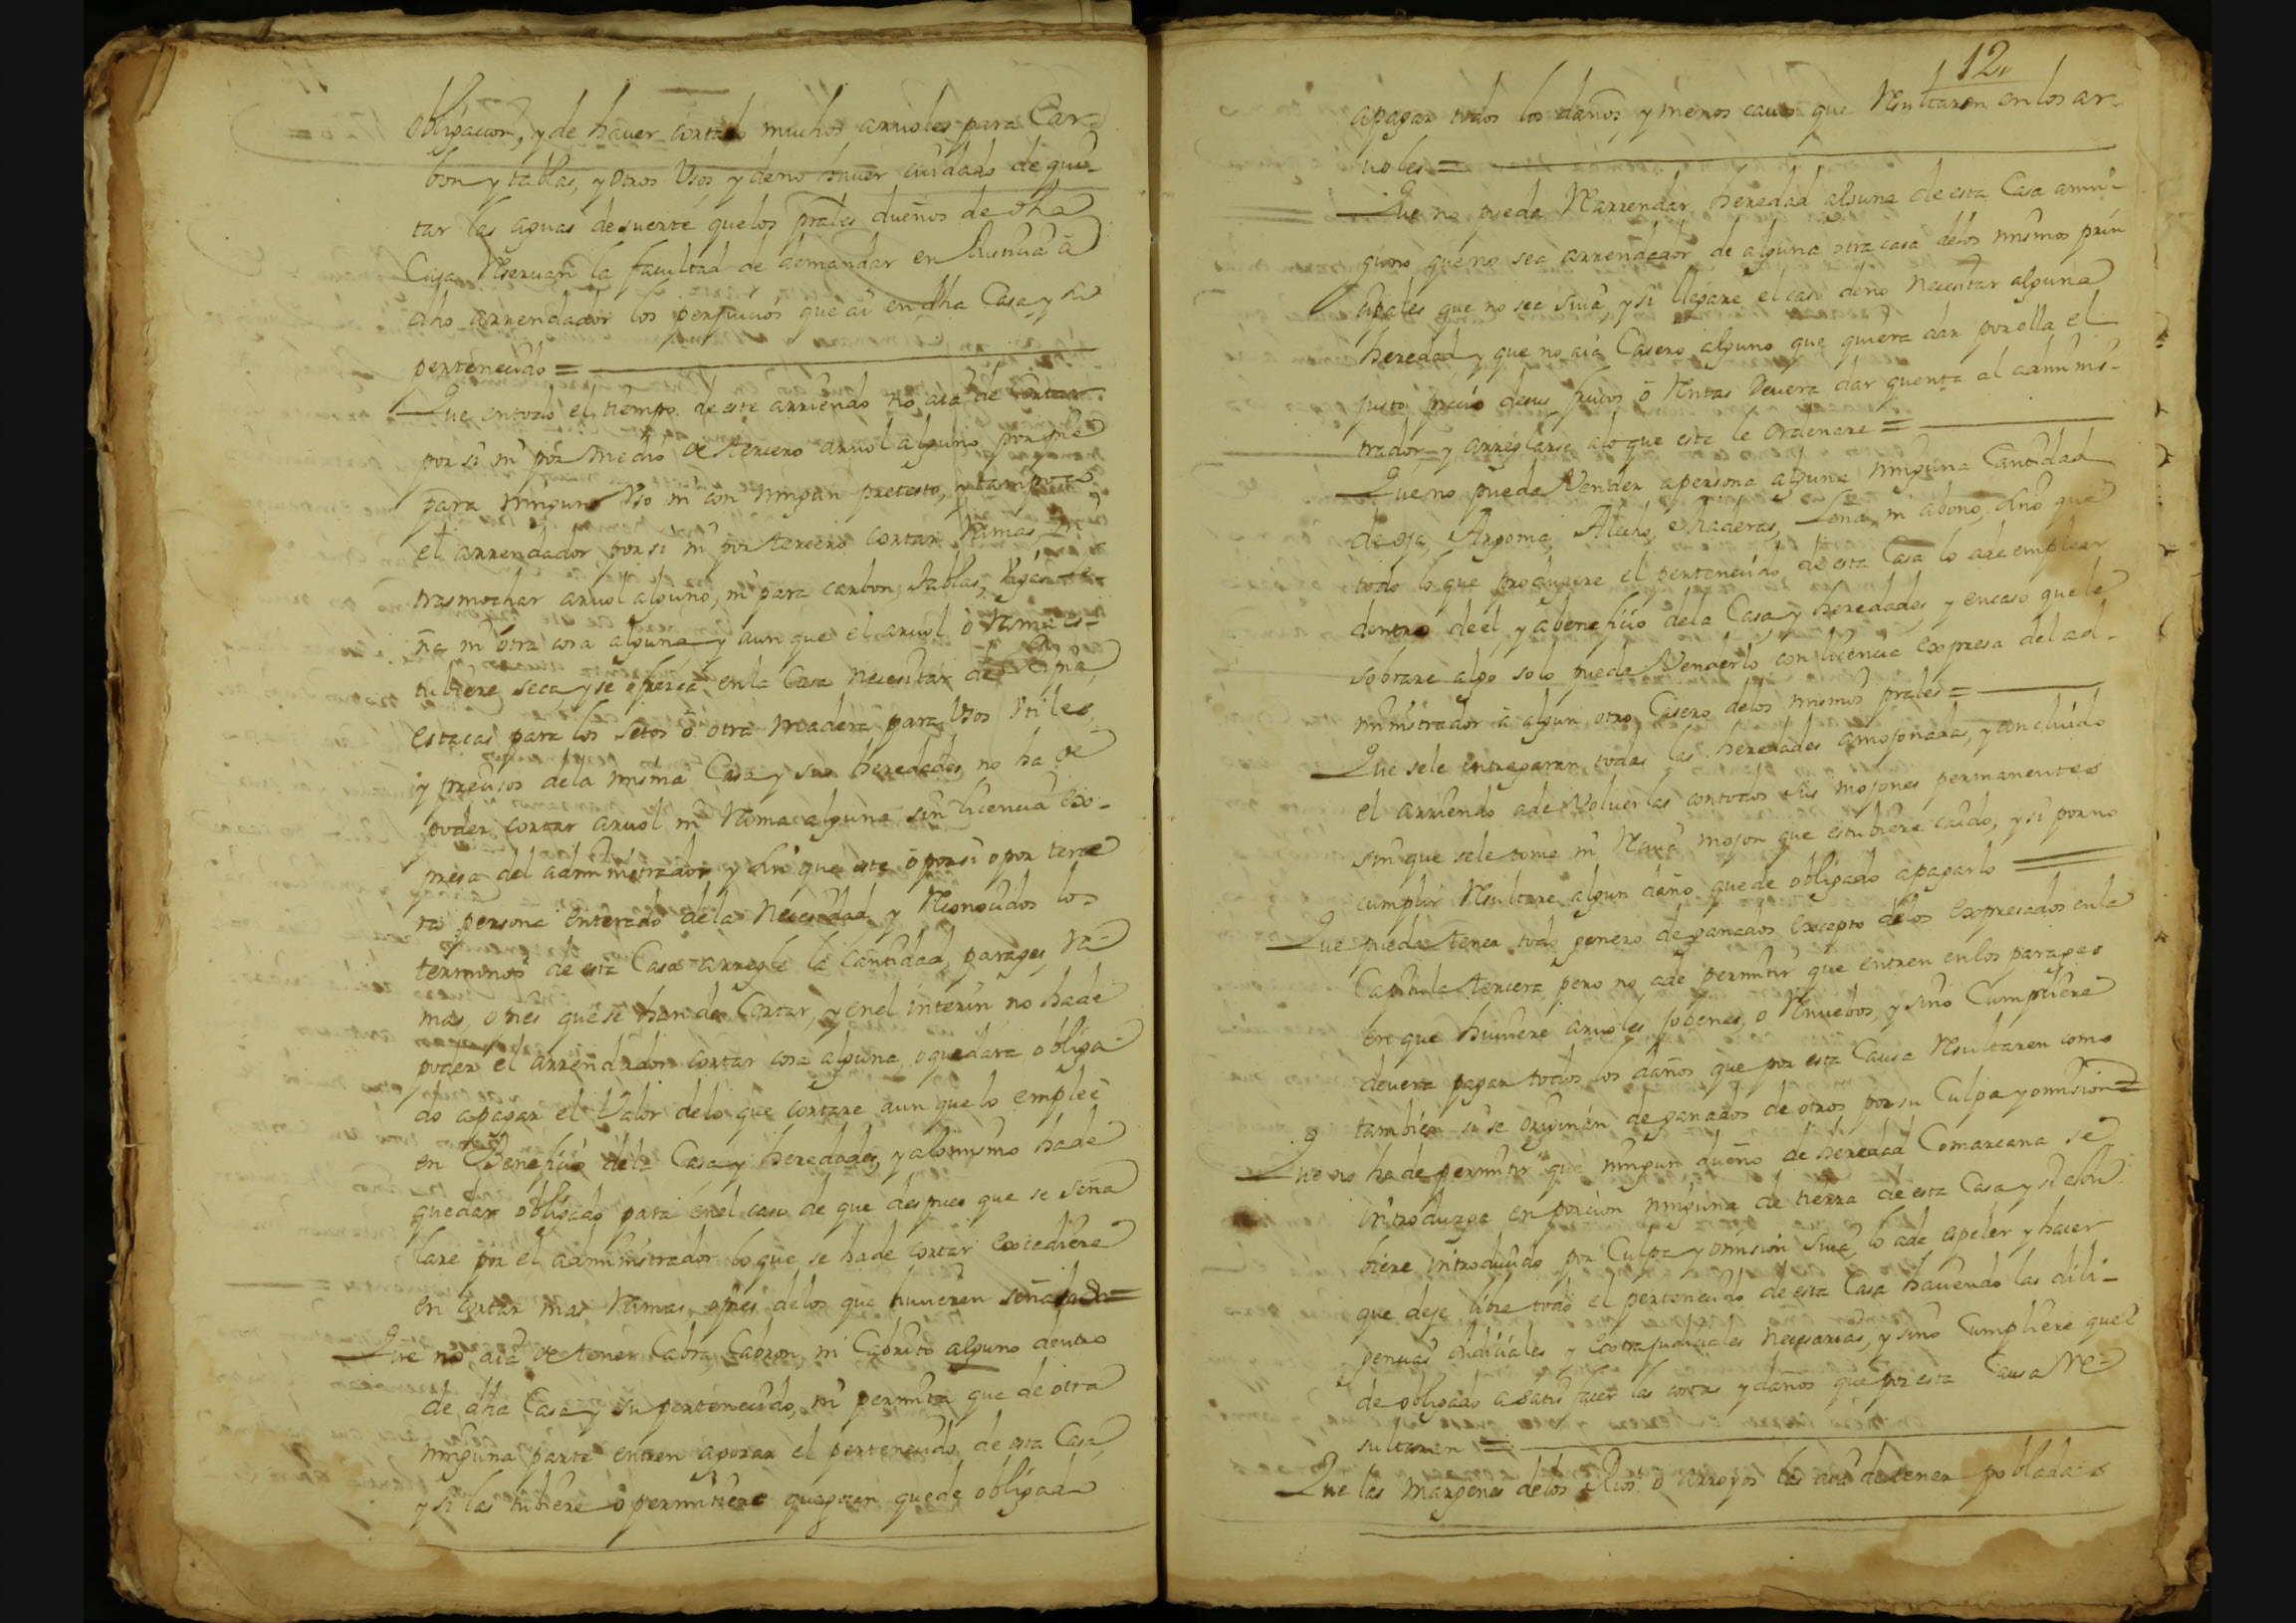 obligacion, y de haver cortado muchos arvoles para Car-
bon y tablas, y otros Vsos, y de no haver cuidado de qui-
tar las aguas de suerte que los prales dueños de dha
Casa Reservan la facultad de demandar en Justicia à
dho arrendador los perjuicios que ai en dha Casa y su
pertenecido =
Que en todo el tiempo de este arriendo no aia de cortar
por si ni por medio de tercero arvol alguno por pie
para ninguno Vso ni con ningun pretesto, y tampoco
el arrendador por si ni por tercero cortar Ramas, ni
trasmochar arvol alguno, ni para carbon, tablas,
ña ni otra cosa alguna y aun que el arvol ò Rama es-
tubiere seca, y se ofrezca en la Casa necesitar de
estacas para los Setos ò otra madera para Vsos Vtiles,
y precisos de la misma Casa y sus heredades no ha de
poder cortar arvol ni Rama alguna sin licencia ex-
presa del administrador y sin que este ò por si o por terce
ra persona enterado de la necesidad y Reconocidos los
terminos de esta Casa arregle la cantidad, parages, Ra-
mas, o pies que se han de Cortar, y en el interin no ha de
poder el arrendador cortar cosa alguna, o quedara obliga-
do a pagar el Valor de lo que cortare aun que lo emplee
en Beneficio de la Casa y heredades, y a lo mismo ha de
quedar obligado para en el caso de que despues que se seña
lare por el administrador lo que se ha de cortar excediere
en cortar mas Ramas, o pies de los que huvieren señalado =
Que no aia de tener Cabra, Cabron, ni Cabrito alguno dentro
de dha Casa y su pertenecido, ni permita que de otra
ninguna parte entren a gozar el pertenecido de esta Casa,
y si las tubiere ò permitiere que gozen quede obligado
12
a pagar todos los daños y menos cavos que Resultaren en los ar-
voles =
Que no pueda Rarrendar heredad alguna de esta Casa a nin-
guno que no sea arrendador de alguna otra casa de los mismos prin
cipales que no sea suia, y si llegare el caso de no necesitar alguna
heredad y que no aia Casero alguno que quiera dar por ella el
justo precio de sus frutos ò Rentas devera dar quenta al adminis-
trador y arreglarse a lo que este le ordenare =
Que no pueda Vender a persona alguna ninguna Cantidad
de oja, Argoma, Alecho, Leña, ni abono, sino que
todo lo que produjere el pertenecido de esta Casa lo a de emplear
dentro de el, y a beneficio de la Casa y heredades, y en caso que le
sobrare algo solo puede Venderlo con licencia expresa del ad-
ministrador à algun otro Casero de los mismos prales =
Que se le entregaran todas las heredades amojonadas, y concluido
el arriendo a de Volver las con todos sus mojones permanentes
sin que se le tome ni mojon que estubiere caido, y si por no
cumplir Resultare algun daño quede obligado a pagarlo =
Que pueda tener todo genero de ganados excepto de los expresados en la
Capitula tercera, pero no a de permitir que entren en los parages
en que huviere arvoles jobenes, o Renuebos, y sino Cumpliere
devera pagar todos los daños que por esta Causa Resultaren como
tambien si se originan de ganados de otros por su Culpa y omision =
Que no ha de permitir que ningun dueño de heredad Comarcana se
introduzga en porcion ninguna de tierra de esta Casa y si estu
biere introducido por Culpa y omision suia, lo a de apeler y hacer
que deje libre todo el pertenecido de esta Casa haciendo las dili-
gencias Judiciales y extrajudiciales necesarias, y sino Cumpliere que
de obligado a satisfacer las costas y daños que por esta Causa Re-
sultaren =
Que las margenes de los Rios ò arroyos las aia de tener pobladas